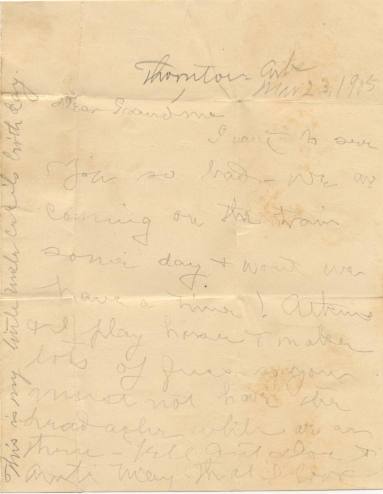 Thornton Ark
Mar 23, 1905
Dear Grandma
I want to see
you so bad - we are
coming on the train
some day & wont we
have a time!
& I play horse & make
lots of fuss so you
must not have the
head ache while we are
there - Tell Aunt &
Aunti May that I love
This is my little uncle birth day.